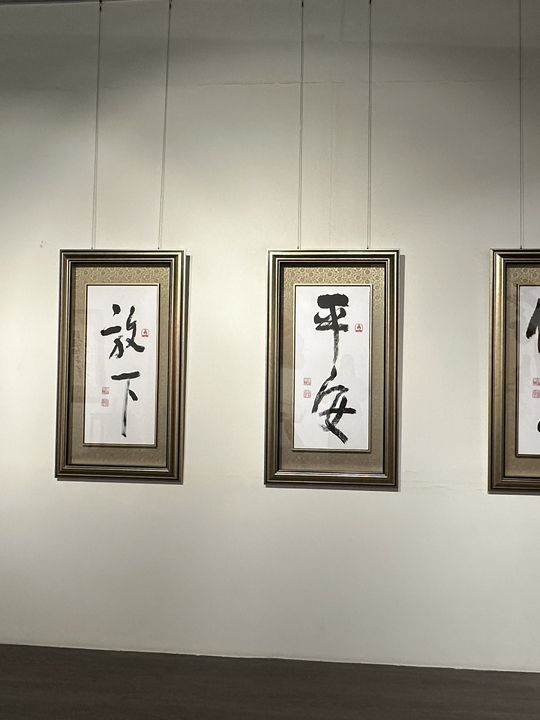 放下
平安